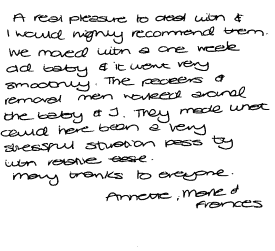 A real pleasure to deal with &
I would highly recommend them.
We moved with a one week
old baby & it went very
smoothly. The packers &
removal men worked around
the baby & I. They made what
could have been a very
stressful situation pass by
with relative ease.
Many thanks to everyone.
Annette, Marie &
Frances